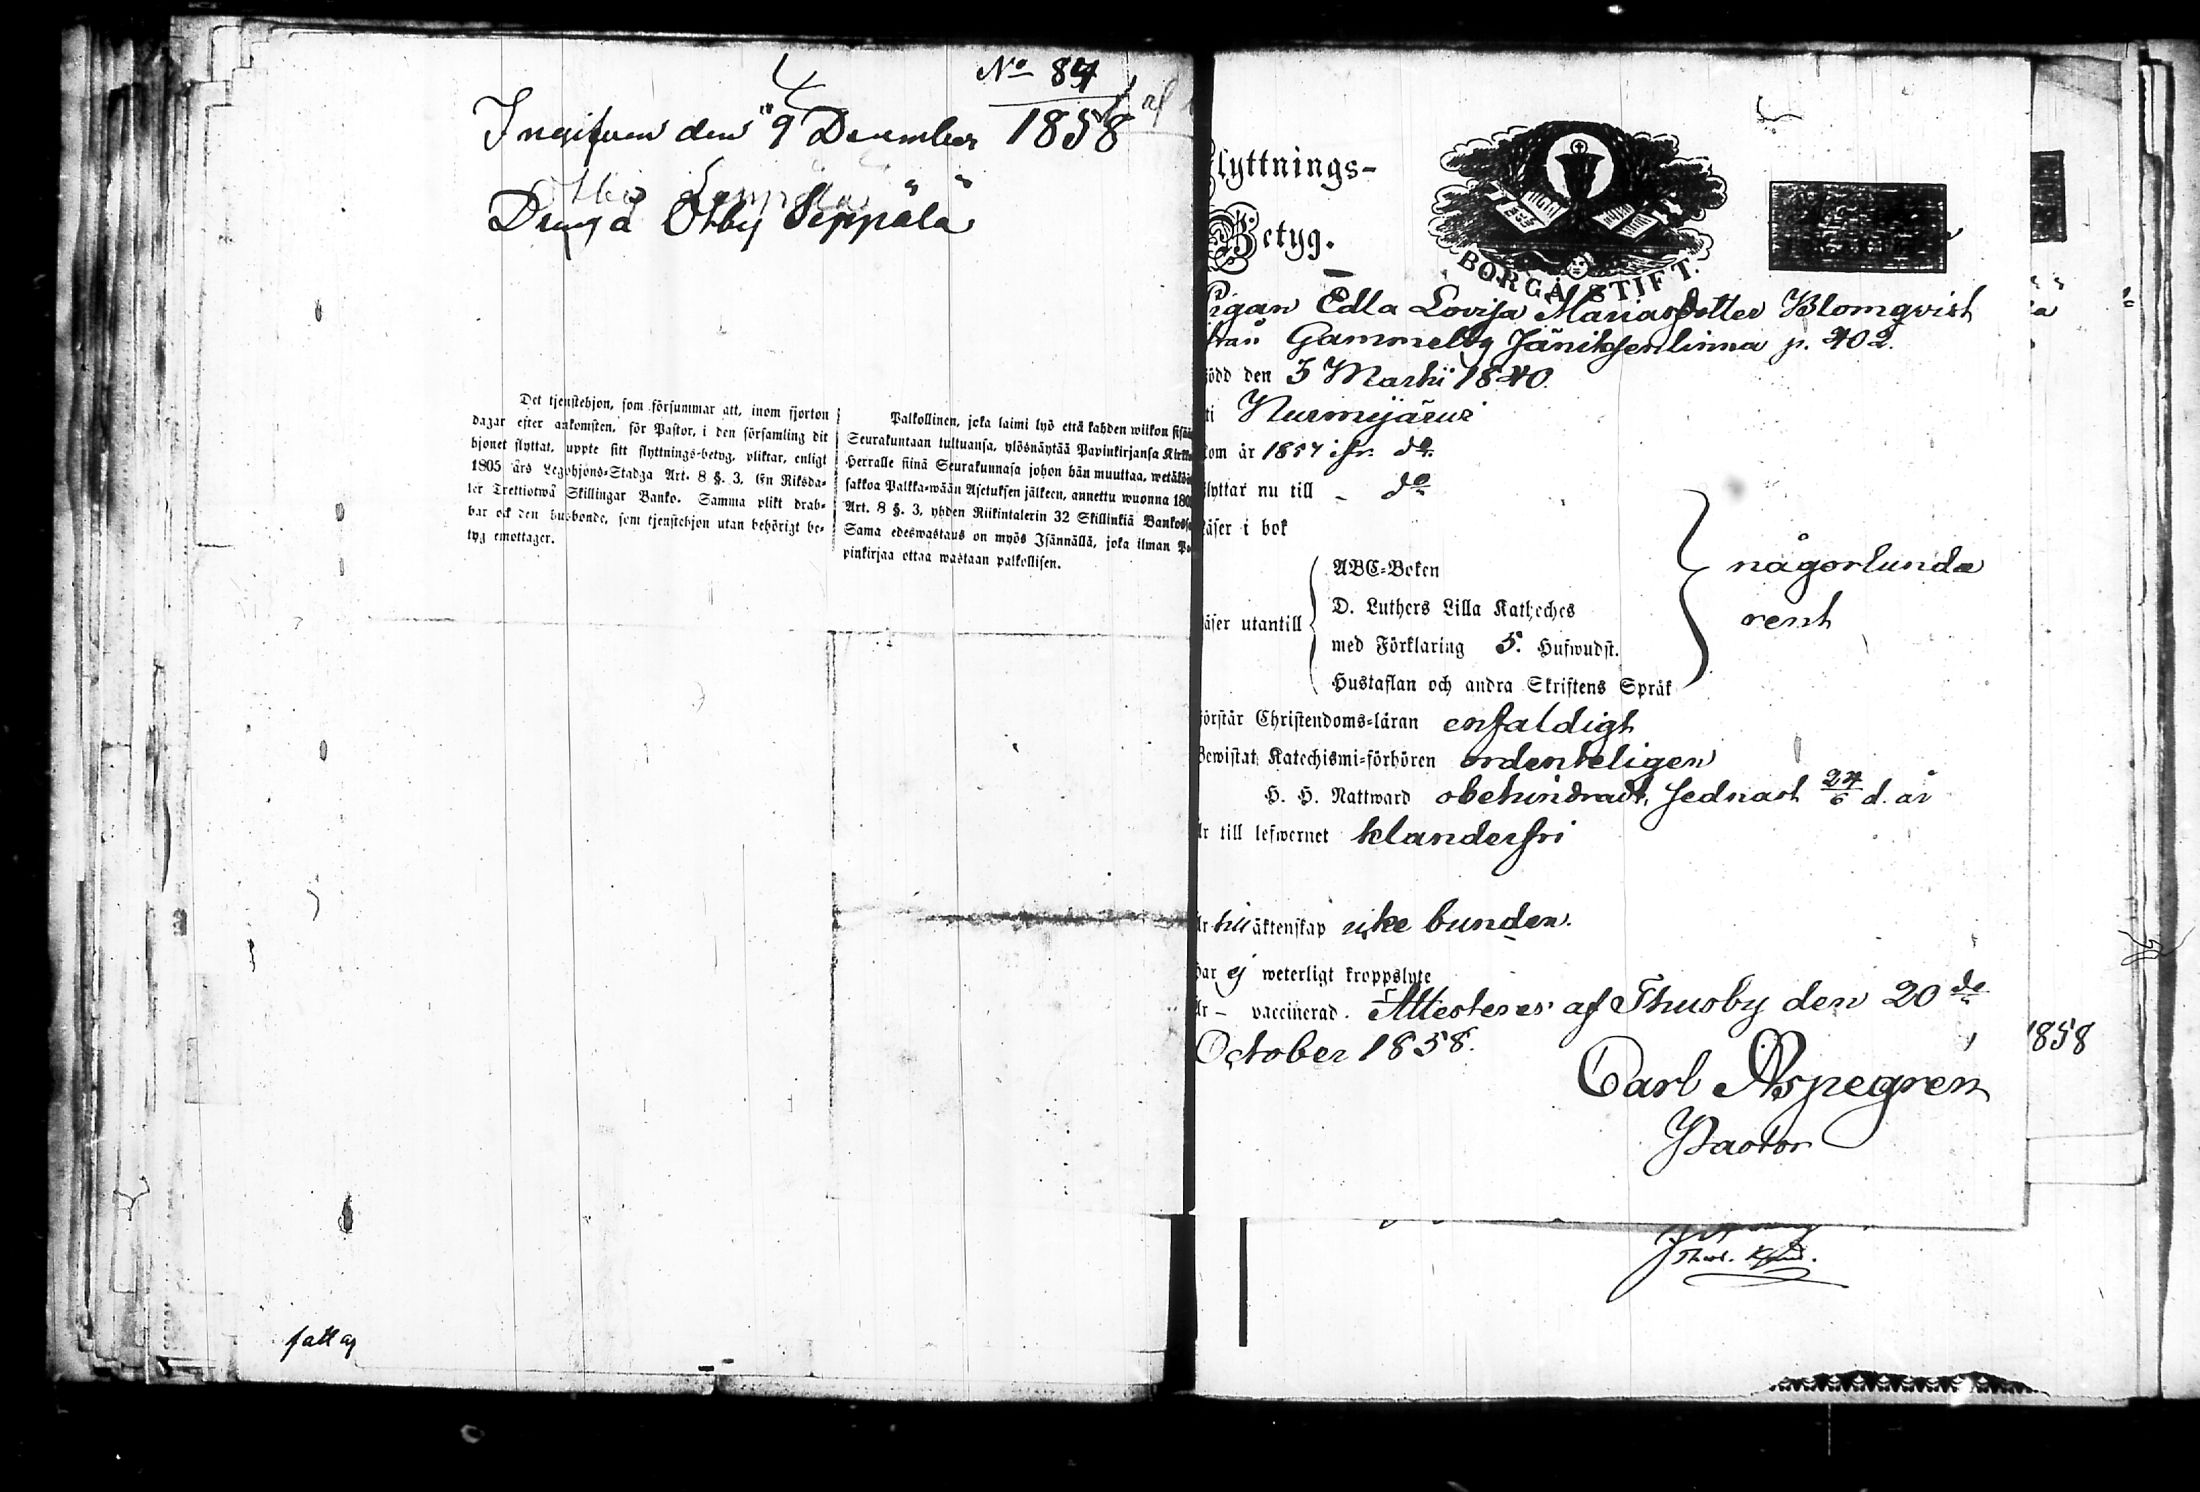 No 84
1858
Ingifven den 9 December
Dräng å Otby Seppälä
Det tjenstehjon, som försummar att, inom fjorton
dagar efter ankomsten, för Pastor, i den församling dit
hjonet flyttat, uppte sitt flyttnings-betyg, pliktar, enligt
1805 års Legohjons-Stadga Art. 8 §. 3, En Riksda-
ler Trettiotwå Skillingar Banko. Samma plikt drab-
bar ock den husbonde, som tjenstehjon utan behörigt be-
tyg emottager.
Palkollinen, joka laimi lyö että kahden wiikon sisä
Seurakuntaan tultuansa, ylösnäytää Papinkirjansa Kirkko
Herralle siinä Seurakunnasa johon hän muuttaa, wetäkö
sakkoa Palkka-wään Asetuksen jälkeen, annettu wuonna 180
Art. 8 §. 3, yhden Riikintalerin 32 Skillinkiä Bankossa
Sama edeswastaus on myös Isännällä, joka ilman Pa
pinkirjaa ottaa wastaan palkollisen.
fattig
lyttnings-
Betyg.
BORGÅ STIFT.
Pigan Edla Lovisa Mariasdotter Blomqvist
från Gammelby Jäniksenlinna p. 402.
född den 3 Martii 1840.
ti Nurmijärvi
kom år 1857 ifr. do.
flyttar nu till - do
äser i bok
äser utantill
ABC-Boken
D. Luthers Lilla Katheches
med Förklaring 5. Hufwudst.
Hustaflan och andra Skriftens Språk
någorlunda
rent
örstår Christendoms-läran enfaldigt
Bewistat Katechismi-förhören ordenteligen
H. H. Nattward obehindradt, sednast 24/6 d. år
Är till lefwernet klanderfri
Är till äktenskap icke bunden.
har ej weterligt kroppslyte
Är - vaccinerad. Attesteres af Thusby den 20de
October 1858.
Carl Aspegren
Pastor
1858